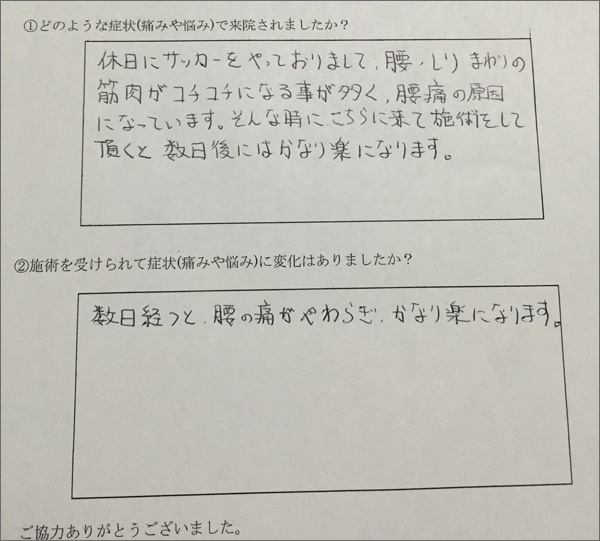 ①どのような症状(痛みや悩み)で来院されましたか?
休日にサッカーをやっておりまして、腰・しりまわりの
筋肉がコチコチになる事が多く、腰痛の原因
になっています。そんな時に、こちらに来て施術をして
頂くと数日後にはかなり楽になります。
②施術を受けられて症状(痛みや悩み)に変化はありましたか?
数日経つと、腰の痛がやわらぎ、かなり楽になります。
ご協力ありがとうございました。